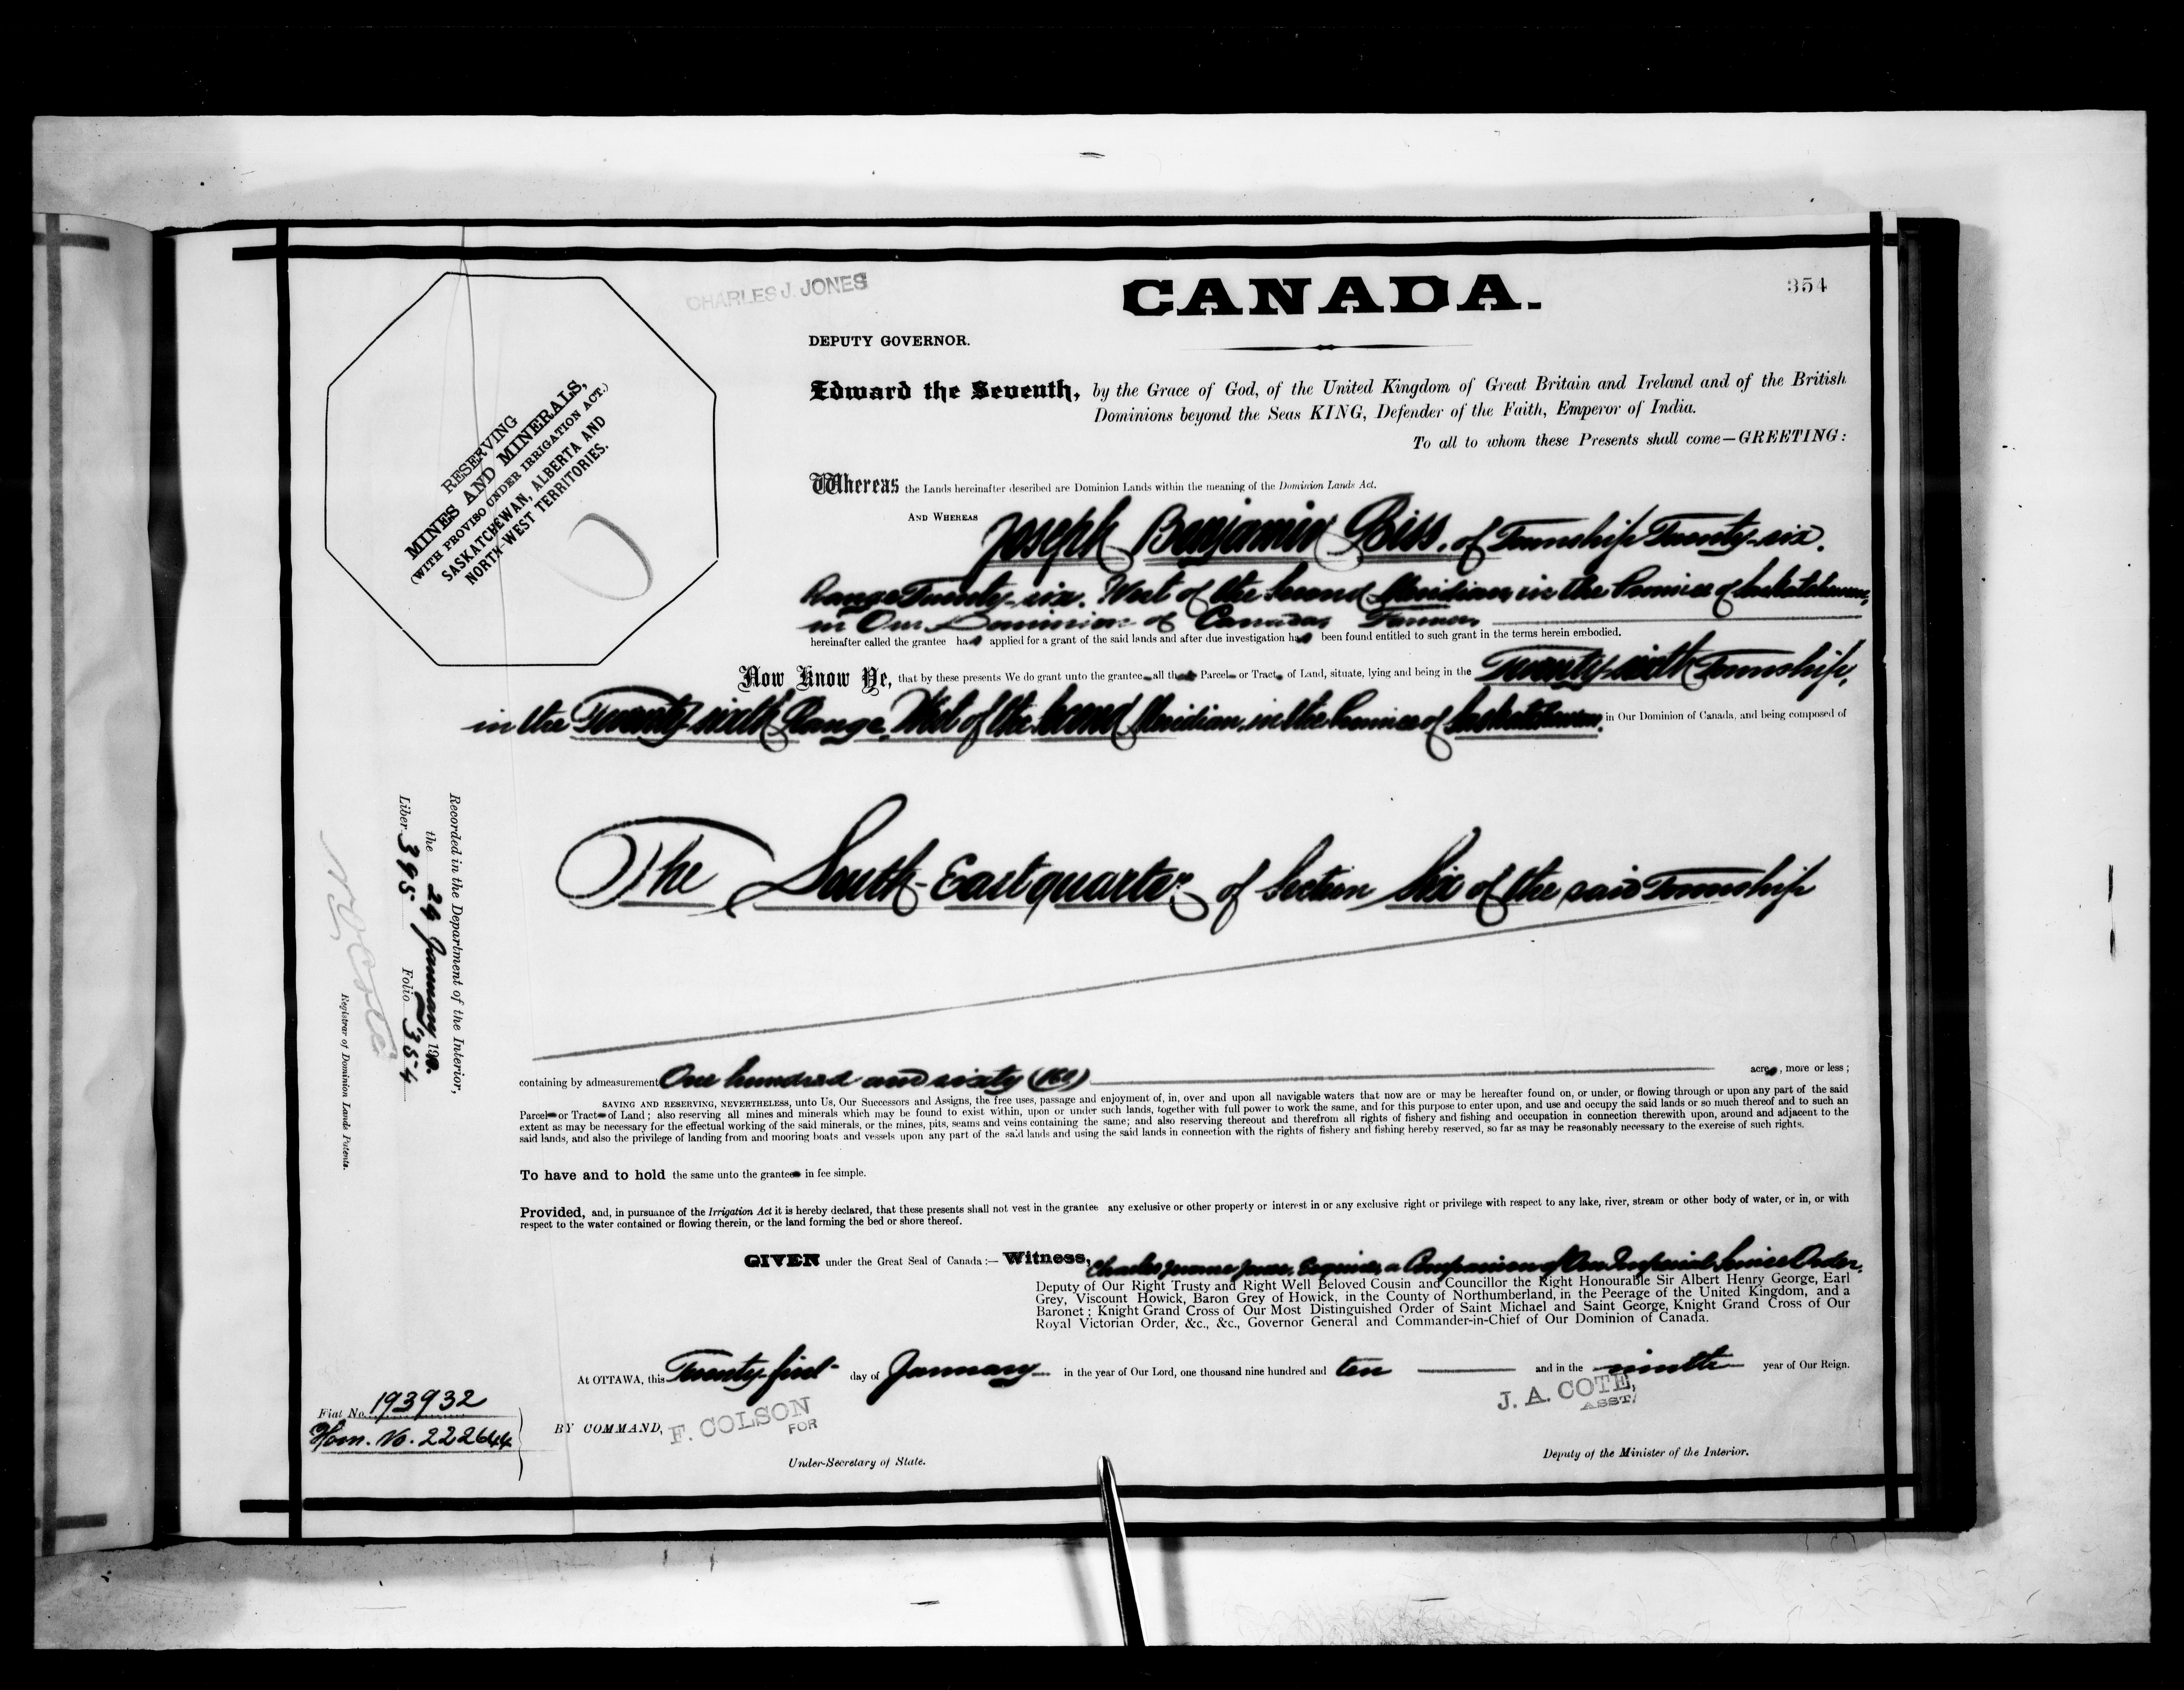 CHARLES J. JONES
CANADA.
354
DEPUTY GOVERNOR.
RESERVING
MINES AND MINERALS,
(WITH PROVISO UNDER IRRIGATION ACT.)
SASKATCHEWAN, ALBERTA AND
NORTH-WEST TERRITORIES.
Edward the Seventh, by the Grace of God, of the United Kingdom of Great Britain and Ireland and of the British
Dominions beyond the Seas KING, Defender of the Faith, Emperor of India.
To all to whom these Presents shall come—GREETING:
Whereas the Lands hereinafter described are Dominion Lands within the meaning of the Dominion Lands Act.
AND WHEREAS Joseph Benjamin Biss, of Township Twenty-six,
Range Twenty-six, West of the Second Meridian, in the Province of Saskatchewan,
in Our Dominion of Canada, Farmer
hereinafter called the grantee has applied for a grant of the said lands and after due investigation has been found entitled to such grant in the terms herein embodied.
Now Know Ye, that by these presents We do grant unto the grantee all that Parcel or Tract of Land, situate, lying and being in the Twenty-sixth Township,
in the Twenty-sixth Range, West of the Second Meridian, in the Province of Saskatchewan, in Our Dominion of Canada, and being composed of
The South-East quarter of Section Six of the said Township
containing by admeasurement One hundred and sixty (160) acres, more or less;
SAVING AND RESERVING, NEVERTHELESS, unto Us, Our Successors and Assigns, the free uses, passage and enjoyment of, in, over and upon all navigable waters that now are or may be hereafter found on, or under, or flowing through or upon any part of the said
Parcel or Tract of Land; also reserving all mines and minerals which may be found to exist within, upon or under such lands, together with full power to work the same, and for this purpose to enter upon, and use and occupy the said lands or so much thereof and to such an
extent as may be necessary for the effectual working of the said minerals, or the mines, pits, seams and veins containing the same; and also reserving thereout and therefrom all rights of fishery and fishing and occupation in connection therewith upon, around and adjacent to the
said lands, and also the privilege of landing from and mooring boats and vessels upon any part of the said lands and using the said lands in connection with the rights of fishery and fishing hereby reserved, so far as may be reasonably necessary to the exercise of such rights.
To have and to hold the same unto the grantee in fee simple.
Provided, and, in pursuance of the Irrigation Act it is hereby declared, that these presents shall not vest in the grantee any exclusive or other property or interest in or any exclusive right or privilege with respect to any lake, river, stream or other body of water, or in, or with
respect to the water contained or flowing therein, or the land forming the bed or shore thereof.
GIVEN under the Great Seal of Canada:— Witness, Charles Jerome Jones, Esquire, a Companion of Our Imperial Service Order,
Deputy of Our Right Trusty and Right Well Beloved Cousin and Councillor the Right Honourable Sir Albert Henry George, Earl
Grey, Viscount Howick, Baron Grey of Howick, in the County of Northumberland, in the Peerage of the United Kingdom, and a
Baronet; Knight Grand Cross of Our Most Distinguished Order of Saint Michael and Saint George, Knight Grand Cross of Our
Royal Victorian Order, &c., &c., Governor General and Commander-in-Chief of Our Dominion of Canada.
At OTTAWA, this Twenty-first day of January in the year of Our Lord, one thousand nine hundred and ten and in the ninth year of Our Reign.
BY COMMAND, F. COLSON
FOR
Under-Secretary of State.
J. A. COTE,
ASST.
Deputy of the Minister of the Interior.
Recorded in the Department of the Interior,
the 24 January 1910.
Liber 395 Folio 354
Registrar of Dominion Lands Patents.
Fiat No. 193932
Hom. No. 222644